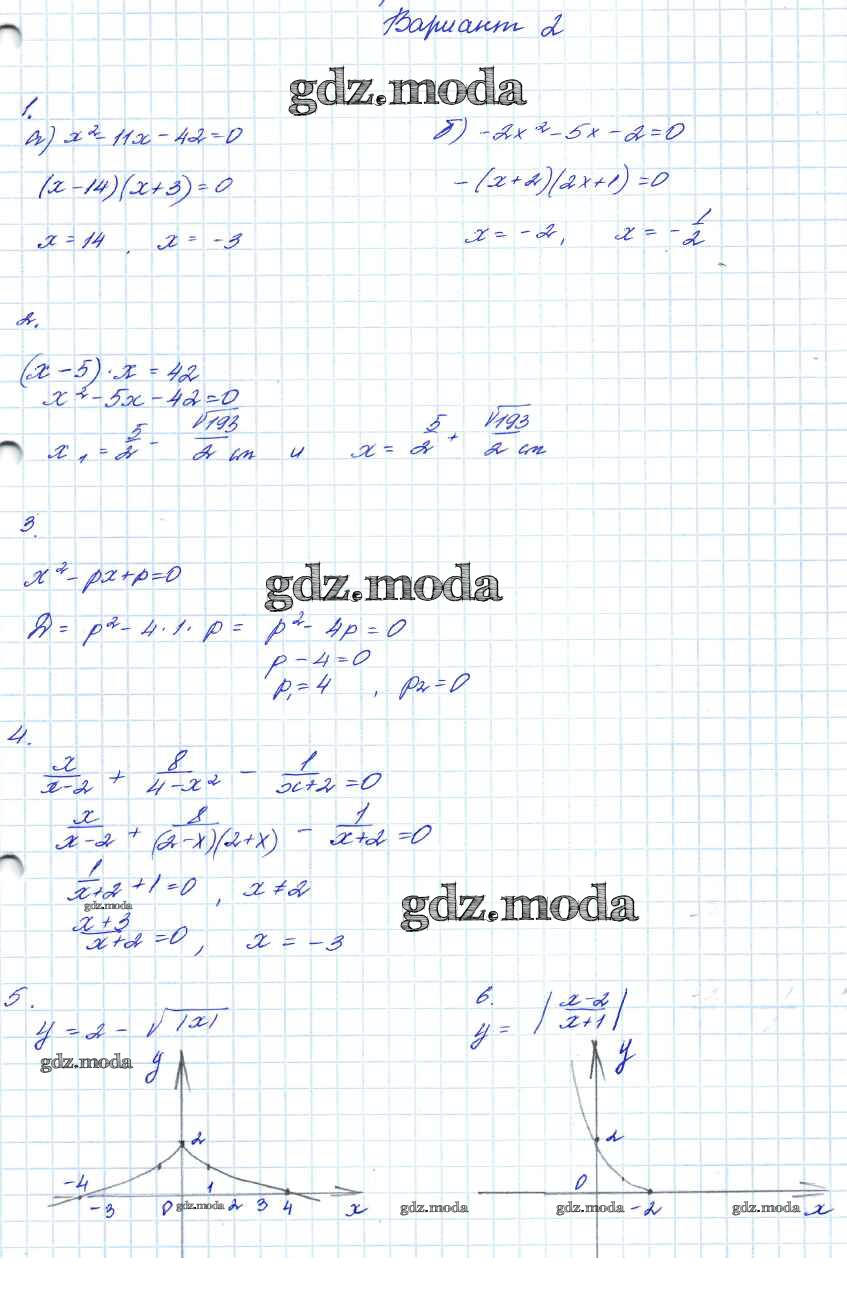 Вариант 2
gdz.moda
1.
а) x² - 11x - 42 = 0
(x - 14)(x + 3) = 0
x = 14, x = -3
б) -2x² - 5x - 2 = 0
-(x + 2)(2x + 1) = 0
x = -2, x = -1/2
2.
(x - 5) · x = 42
x² - 5x - 42 = 0
x₁ = 5/2 - √193/2 см и x = 5/2 + √193/2 см
3.
x² - px + p = 0
gdz.moda
D = p² - 4·1·p = p² - 4p = 0
p - 4 = 0
p₁ = 4, p₂ = 0
4.
x/(x-2) + 8/(4-x²) - 1/(x+2) = 0
x/(x-2) + 8/((2-x)(2+x)) - 1/(x+2) = 0
1/(x+2) + 1 = 0, x ≠ 2
gdz.moda
gdz.moda
(x+3)/(x+2) = 0, x = -3
5.
y = 2 - √|x|
gdz.moda
y
2
-4 -3 0 1 2 3 4 x
gdz.moda
6.
y = |(x-2)/(x+1)|
y
2
0 -2 x
gdz.moda gdz.moda gdz.moda